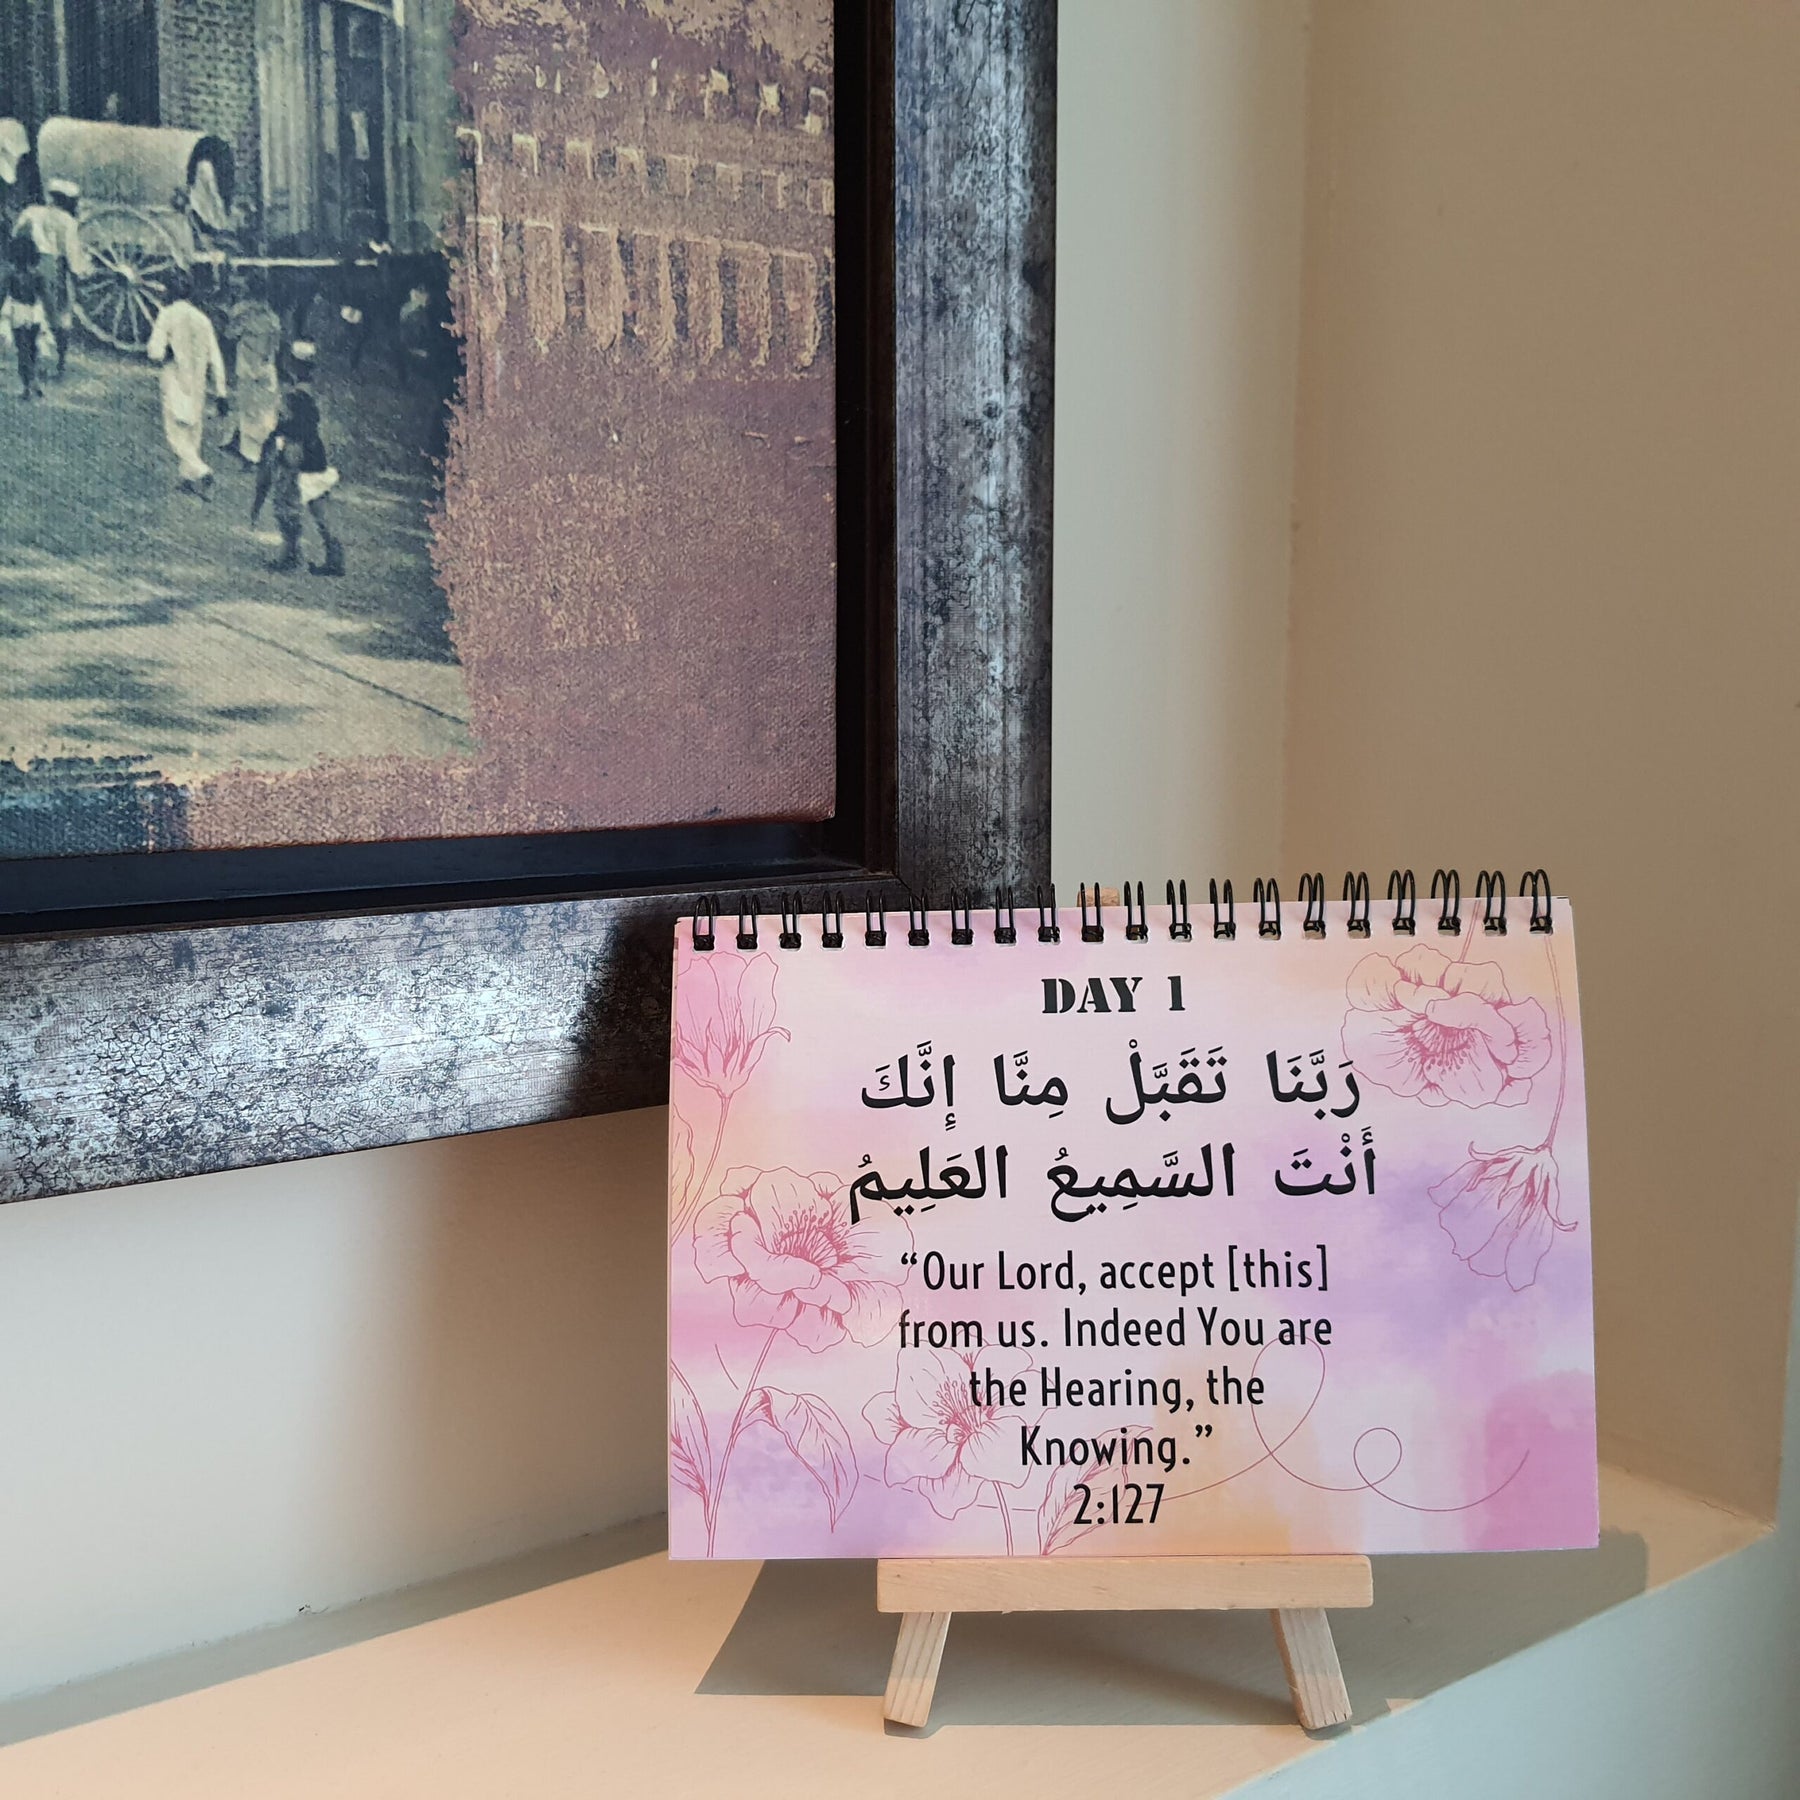 DAY 1
رَبَّنَا تَقَبَّلْ مِنَّا إِنَّكَ
أَنْتَ السَّمِيعُ العَلِيمُ
“Our Lord, accept [this]
from us. Indeed You are
the Hearing, the
Knowing.”
2:127